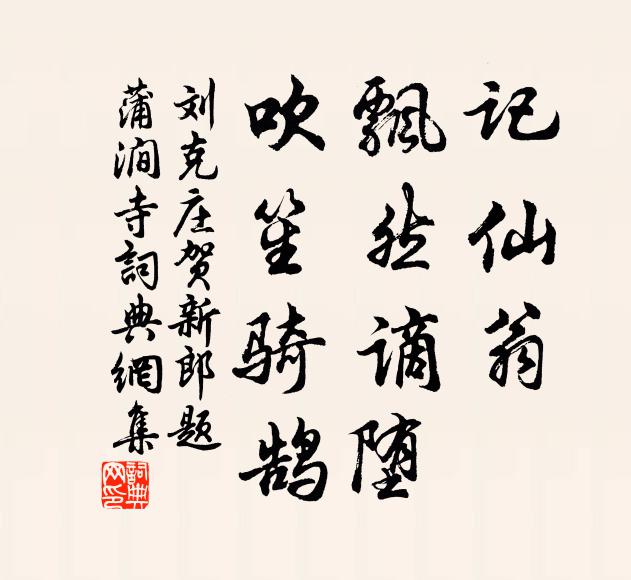 记仙翁
飘然谪堕
吹笙骑鹄
刘克庄贺新郎题
蒲涧寺詞典網集
詞典网印